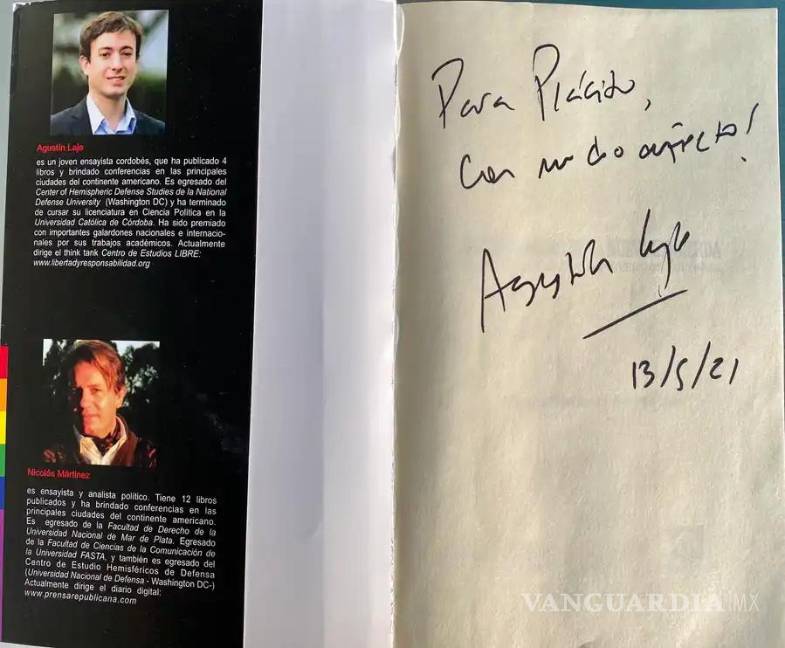 Agustín Laje
es un joven ensayista cordobés, que ha publicado 4
libros y brindado conferencias en las principales
ciudades del continente americano. Es egresado del
Center of Hemispheric Defense Studies de la National
Defense University (Washington DC) y ha terminado
de cursar su licenciatura en Ciencia Política en la
Universidad Católica de Córdoba. Ha sido premiado
con importantes galardones nacionales e internacio-
nales por sus trabajos académicos. Actualmente
dirige el think tank Centro de Estudios LIBRE:
www.libertadyresponsabilidad.org
Nicolás Márquez
es ensayista y analista político. Tiene 12 libros
publicados y ha brindado conferencias en las
principales ciudades del continente americano.
Es egresado de la Facultad de Derecho de la
Universidad Nacional de Mar de Plata. Egresado
de la Facultad de Ciencias de la Comunicación de
la Universidad FASTA, y también es egresado del
Centro de Estudio Hemisféricos de Defensa
(Universidad Nacional de Defensa - Washington DC-)
Actualmente dirige el diario digital:
www.prensarepublicana.com
Para Plácido,
Con mucho afecto!
Agustín Laje
13/5/21
VANGUARDIA MX